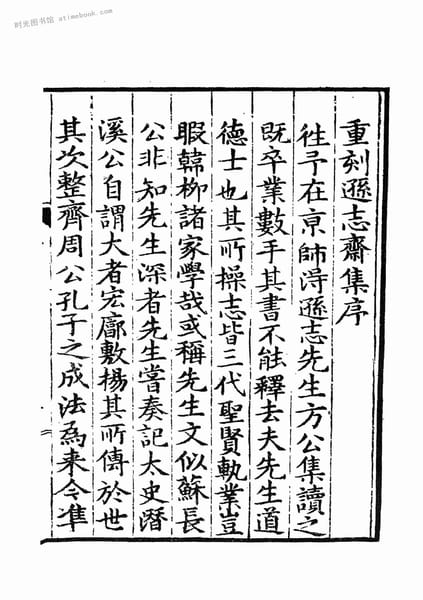 时光图书馆 atimebook.com
重刻遜志齋集序
徃予在京師淂遜志先生方公集讀之
既卒業數手其書不能釋去夫先生道
德士也其所操志皆三代聖賢執業豈
暇韓柳諸家學哉或稱先生文似蘇長
公非知先生深者先生嘗奏記太史潛
溪公自謂大者宏廓敷揚其所傳於世
其次整齊周公孔子之成法爲来今凖